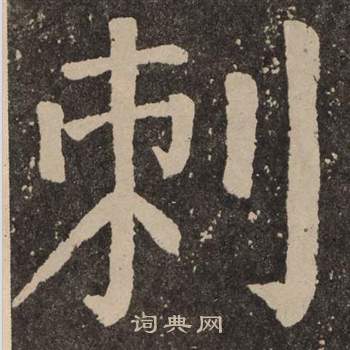 刺
词典网